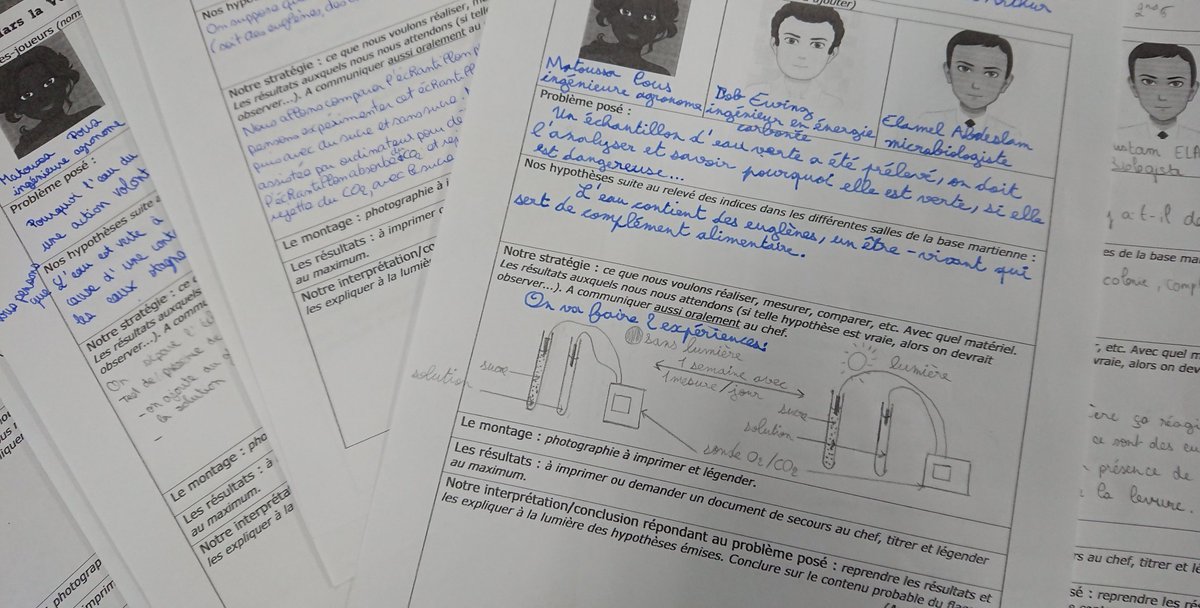 Mars la V
es-joueurs (nom
Matoussa Pous
ingénieure agronome
Problème posé :
Pourquoi l'eau du
une action volont
Nos hypothèses suite a
nous pensons
que l'eau est verte à
cause d'une
les eaux
Notre stratégie : ce
Les résultats auxquels
observer...). A commu
On
Test de présence de
- on ajoute au
la solution
-
Le montage : pho
Les résultats : à
au maximum.
Notre interpréta
les expliquer à la
photograp
imprim
Nos hypo
On suppose que
(soit des euglènes, des
Notre stratégie : ce que nous voulons réaliser, me
Les résultats auxquels nous nous attendons (si telle
observer...). A communiquer aussi oralement au
Nous allons comparer l'échantillon p
pensons expérimenter cet échantill
puis avec du sucre et sans sucre
assistée par ordinateur pour dé
l'échantillon absorbe du CO2 et rej
rejette du CO2, avec le sucre
Le montage : photographie à i
Les résultats : à imprimer o
au maximum.
Notre interprétation/co
les expliquer à la lumiè
ajouter)
Matoussa Pous
ingénieure agronome
Bob Ewing
ingénieur en énergie
carbonée
Elamel Abdeslam
microbiologiste
Problème posé :
Un échantillon d'eau verte a été prélevé, on doit
l'analyser et savoir pourquoi elle est verte, si elle
est dangereuse...
Nos hypothèses suite au relevé des indices dans les différentes salles de la base martienne :
L'eau contient des euglènes, un être-vivant qui
sert de complément alimentaire.
Notre stratégie : ce que nous voulons réaliser, mesurer, comparer, etc. Avec quel matériel.
Les résultats auxquels nous nous attendons (si telle hypothèse est vraie, alors on devrait
observer...). A communiquer aussi oralement au chef.
On va faire 2 expériences:
sans lumière
lumière
1 semaine avec
1 mesure/jour
sucre
solution
sucre
solution
sonde O2/CO2
Le montage : photographie à imprimer et légender.
Les résultats : à imprimer ou demander un document de secours au chef, titrer et légender
au maximum.
Notre interprétation/conclusion répondant au problème posé : reprendre les résultats et
les expliquer à la lumière des hypothèses émises. Conclure sur le contenu probable du
2nde
ustam ELA
biologiste
y a t-il d
es de la base mar
colonie, comp
, etc. Avec quel m
vraie, alors on dev
ère ça réag
ce sont des eu
présence de
la levure.
rs au chef, titrer et lé
sé : reprendre les